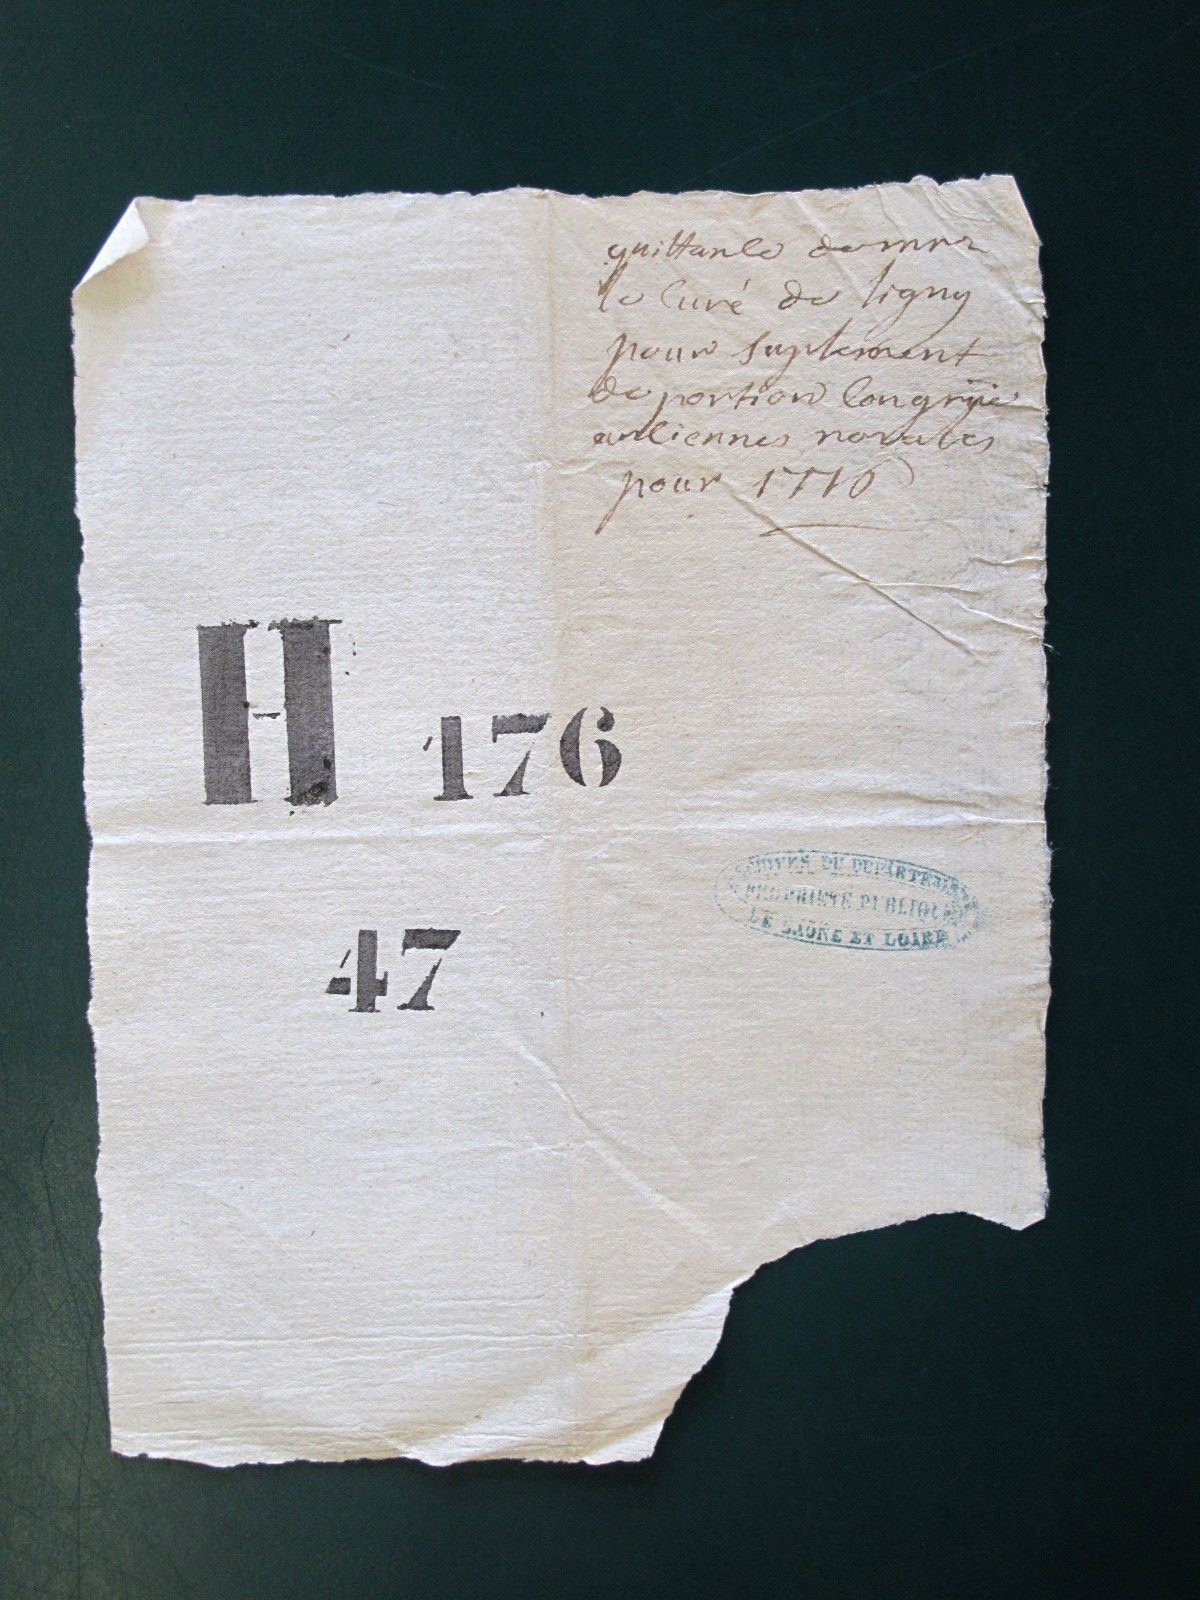 quittance de mr
le Curé de ligny
pour suplement
de portion Congrüe
anciennes novales
pour 1716
H 176
47
DU DEPARTEMENT
PROPRIETE PUBLIQUE
DE SAONE ET LOIRE